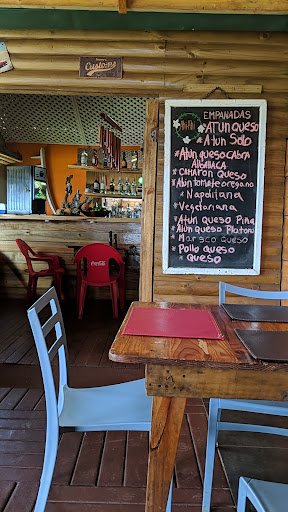 Customs
EMPANADAS
* ATUN QUESO
* ATUN Solo
* ATUN queso CABRA
ALBAHACA
* CAMARON QUESO
* Atun tomate oregano
* Napolitana
* Vegetariana
* ATUN QUESO Piña
* ATUN QUESO Platano
* Marisco Queso
* Pollo queso
* QUESO
Coca-Cola